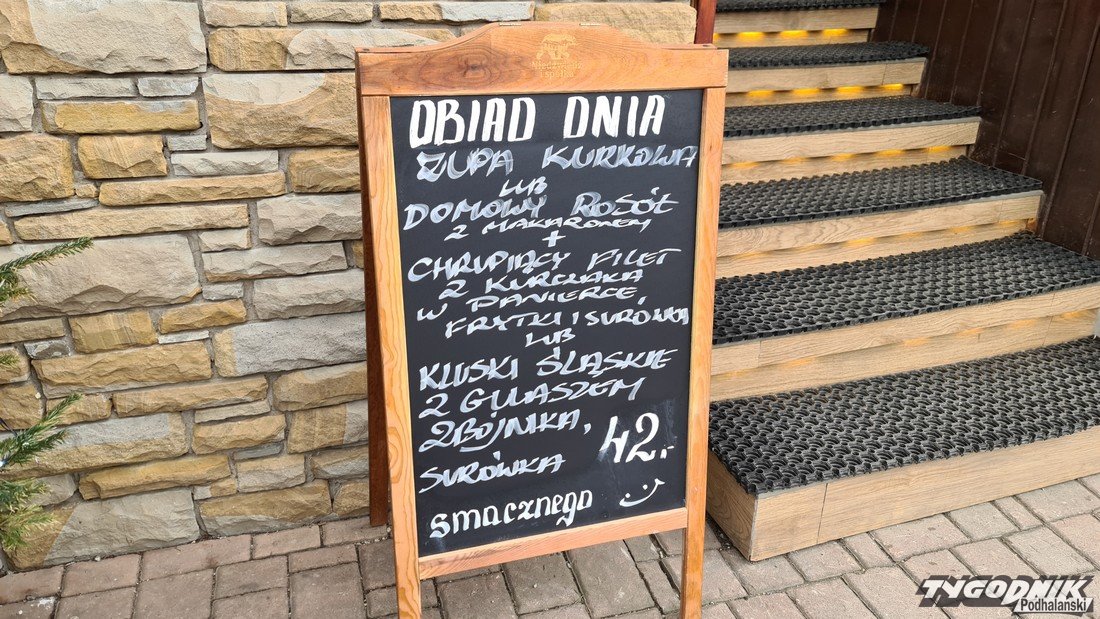 Niedźwiedź
i spółka
OBIAD DNIA
ZUPA KURKOWA
LUB
DOMOWY ROSÓŁ
Z MAKARONEM
+
CHRUPIĄCY FILET
Z KURCZAKA
W PANIERCE,
FRYTKI I SURÓWKA,
LUB
KLUSKI ŚLĄSKIE
Z GULASZEM
ZBÓJNIKA,
SURÓWKA 42.-
smacznego
TYGODNIK
Podhalański